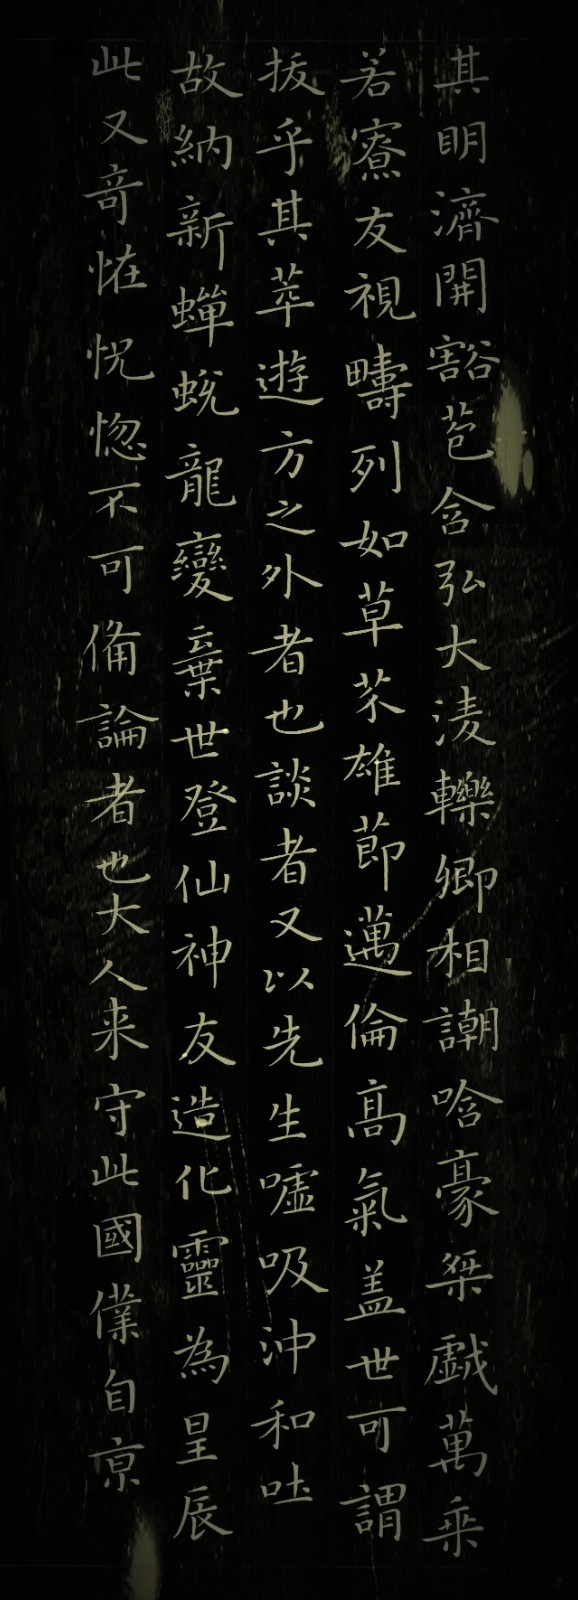 其明濟開豁苞含弘大淩轢卿相謿唅豪桀戱萬乘
若寮友視疇列如草芥雄節邁倫高氣盖世可謂
拔乎其萃遊方之外者也談者又以先生噓吸沖和吐
故納新蟬蛻龍變棄世登仙神友造化靈為星辰
此又奇恠怳惚不可備論者也大人来守此國僕自京